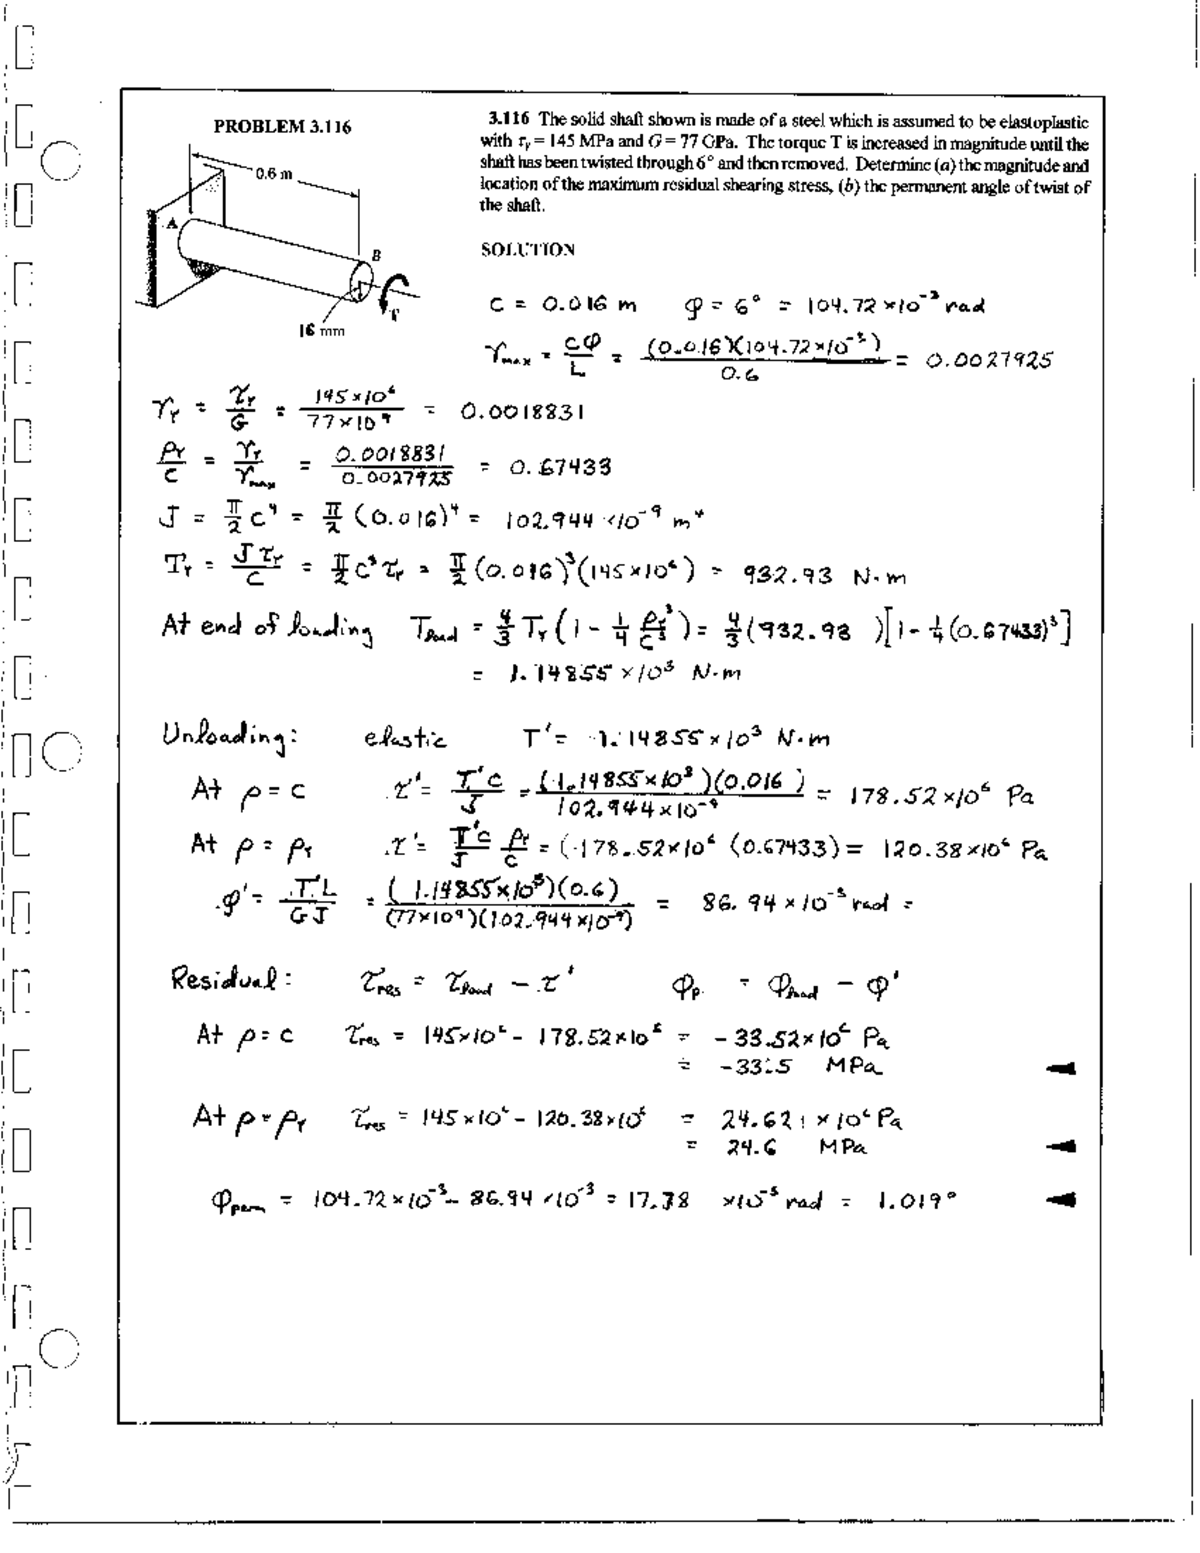 PROBLEM 3.116
3.116 The solid shaft shown is made of a steel which is assumed to be elastoplastic
with τ_Y = 145 MPa and G = 77 GPa. The torque T is increased in magnitude until the
shaft has been twisted through 6° and then removed. Determine (a) the magnitude and
location of the maximum residual shearing stress, (b) the permanent angle of twist of
the shaft.
0.6 m
A
B
T
16 mm
SOLUTION
c = 0.016 m φ = 6° = 104.72 ×10⁻³ rad
γ_max = cφ/L = (0.016)(104.72×10⁻³)/0.6 = 0.0027925
γ_Y = τ_Y/G = 145×10⁶/77×10⁹ = 0.0018831
ρ_Y/c = γ_Y/γ_max = 0.0018831/0.0027925 = 0.67433
J = π/2 c⁴ = π/2 (0.016)⁴ = 102.944 ×10⁻⁹ m⁴
T_Y = Jτ_Y/c = π/2 c³ τ_Y = π/2 (0.016)³(145×10⁶) = 932.93 N·m
At end of loading T_load = 4/3 T_Y (1 - 1/4 ρ_Y³/c³) = 4/3 (932.93 )[1 - 1/4 (0.67433)³]
= 1.14855 ×10³ N·m
Unloading: elastic T' = 1.14855 ×10³ N·m
At ρ = c τ' = T'c/J = (1.14855×10³)(0.016)/102.944×10⁻⁹ = 178.52×10⁶ Pa
At ρ = ρ_Y τ' = T'c/J ρ_Y/c = (178.52×10⁶ (0.67433) = 120.38×10⁶ Pa
φ' = T'L/GJ = (1.14855×10³)(0.6)/(77×10⁹)(102.944×10⁻⁹) = 86.94 ×10⁻³ rad =
Residual: τ_res = τ_load - τ' φ_p = φ_load - φ'
At ρ = c τ_res = 145×10⁶ - 178.52×10⁶ = - 33.52×10⁶ Pa
= -33.5 MPa
At ρ = ρ_Y τ_res = 145×10⁶ - 120.38×10⁶ = 24.62 ×10⁶ Pa
= 24.6 MPa
φ_perm = 104.72×10⁻³ - 86.94 ×10⁻³ = 17.78 ×10⁻³ rad = 1.019°